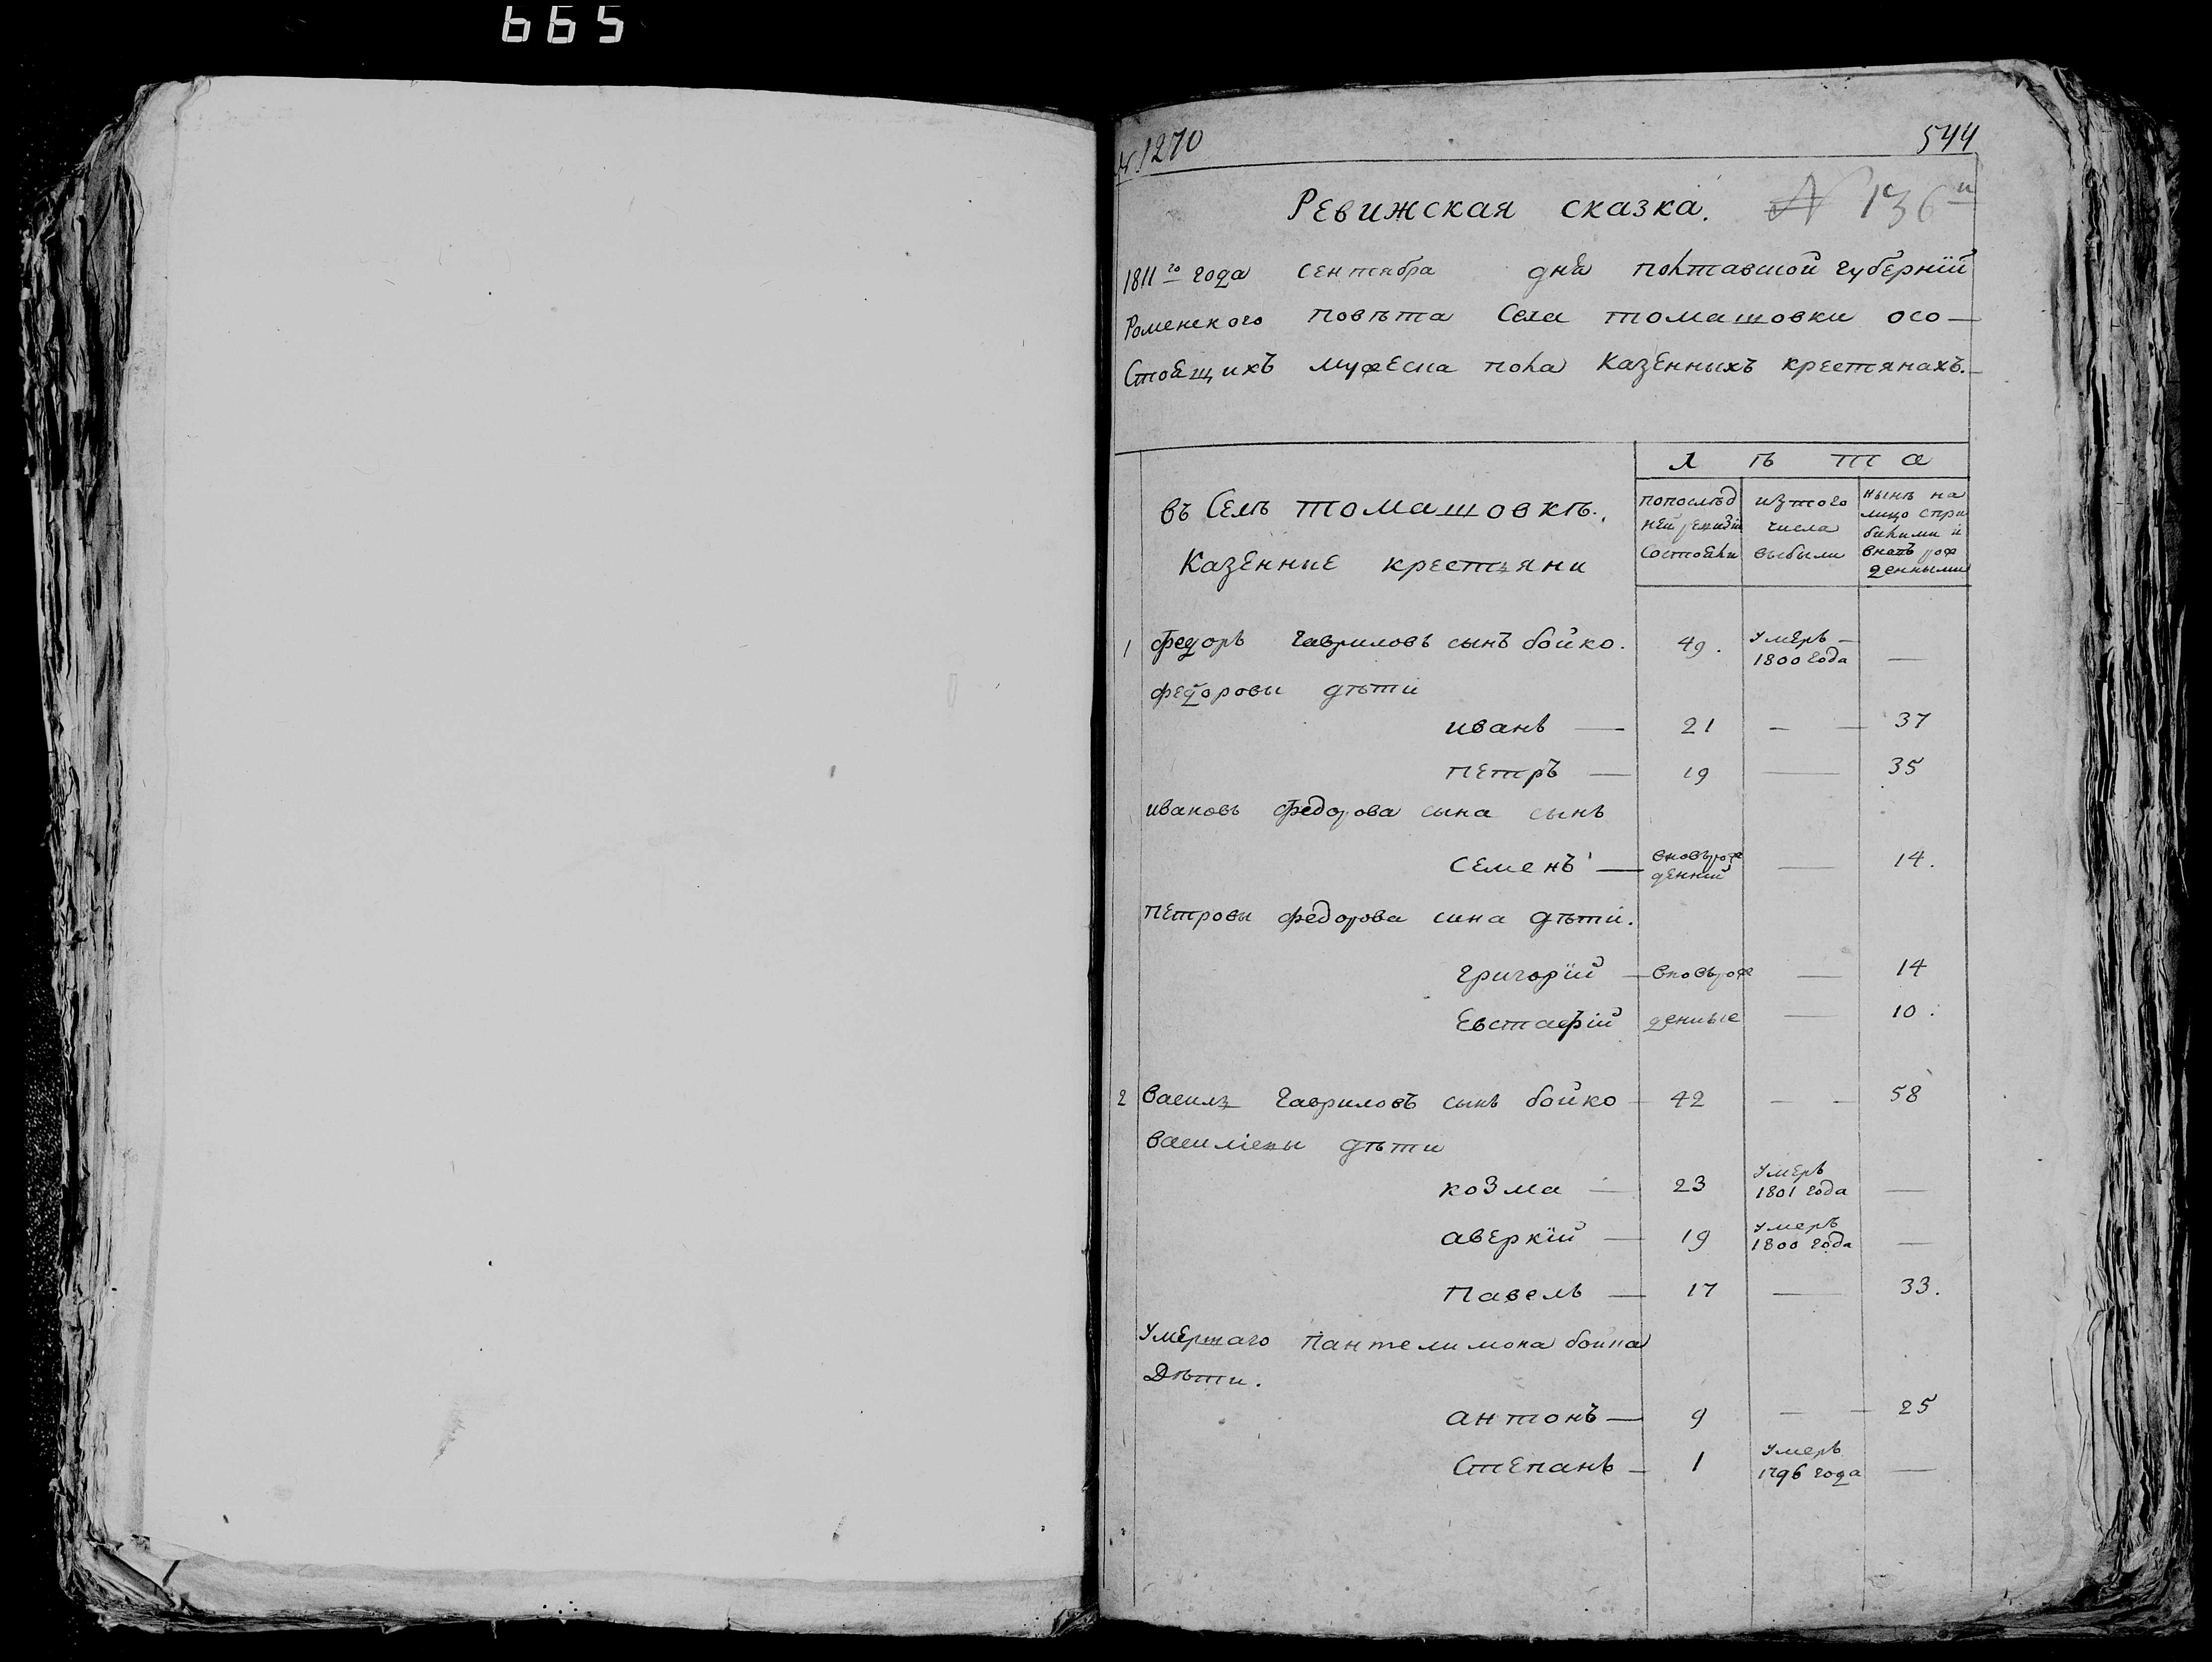 665
№ 1270 544
Ревижская сказка. № 136й
1811го года сентября дня полтавской губерніи
Роменского Повѣта Села томашовки осо-
Стоящихъ мужеска пола Казенныхъ крестянахъ.
Лѣта
въ Селѣ томашовкѣ.
Казенние крестяни
попослѣд
ней ревизіи
состояли
изтого
числа
выбыли
нынѣ на
лицо спри
билими и
вновъ рож
денными
1 федоръ гавриловъ сынъ бойко. 49. умеръ 1800 года —
федоровы дѣти
иванъ — 21 — — 37
петръ — 19 — 35
ивановъ федорова сына сынъ
семенъ — вновърож
денній — 14.
петровы федорова сина дѣти.
григорій — вновърож — 14
Евстафій денные — 10.
2 василь гавриловъ сынъ бойко 42 — — 58
василіевы дѣти
козма — 23 умеръ 1801 года —
аверкій — 19 умеръ 1800 года —
павелъ — 17 — 33.
умершаго пантелимона бойка
Дѣти.
антонъ — 9 — — 25
Степанъ — 1 умеръ 1796 года —